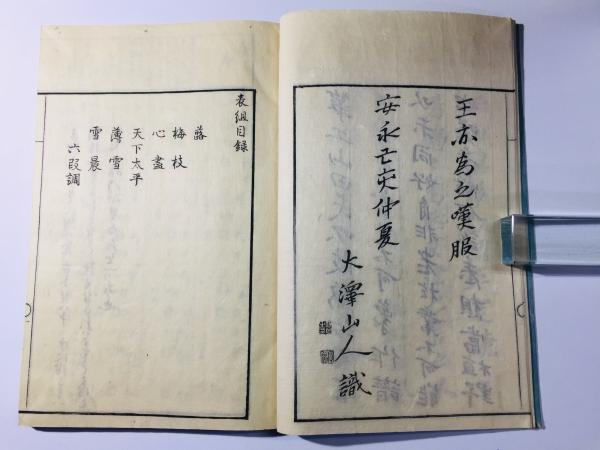 王亦為之嘆服
安永亡㝱仲夏
大澤山人識
表組目録
蕗
梅枝
心盡
天下太平
薄雪
雪晨
六段調